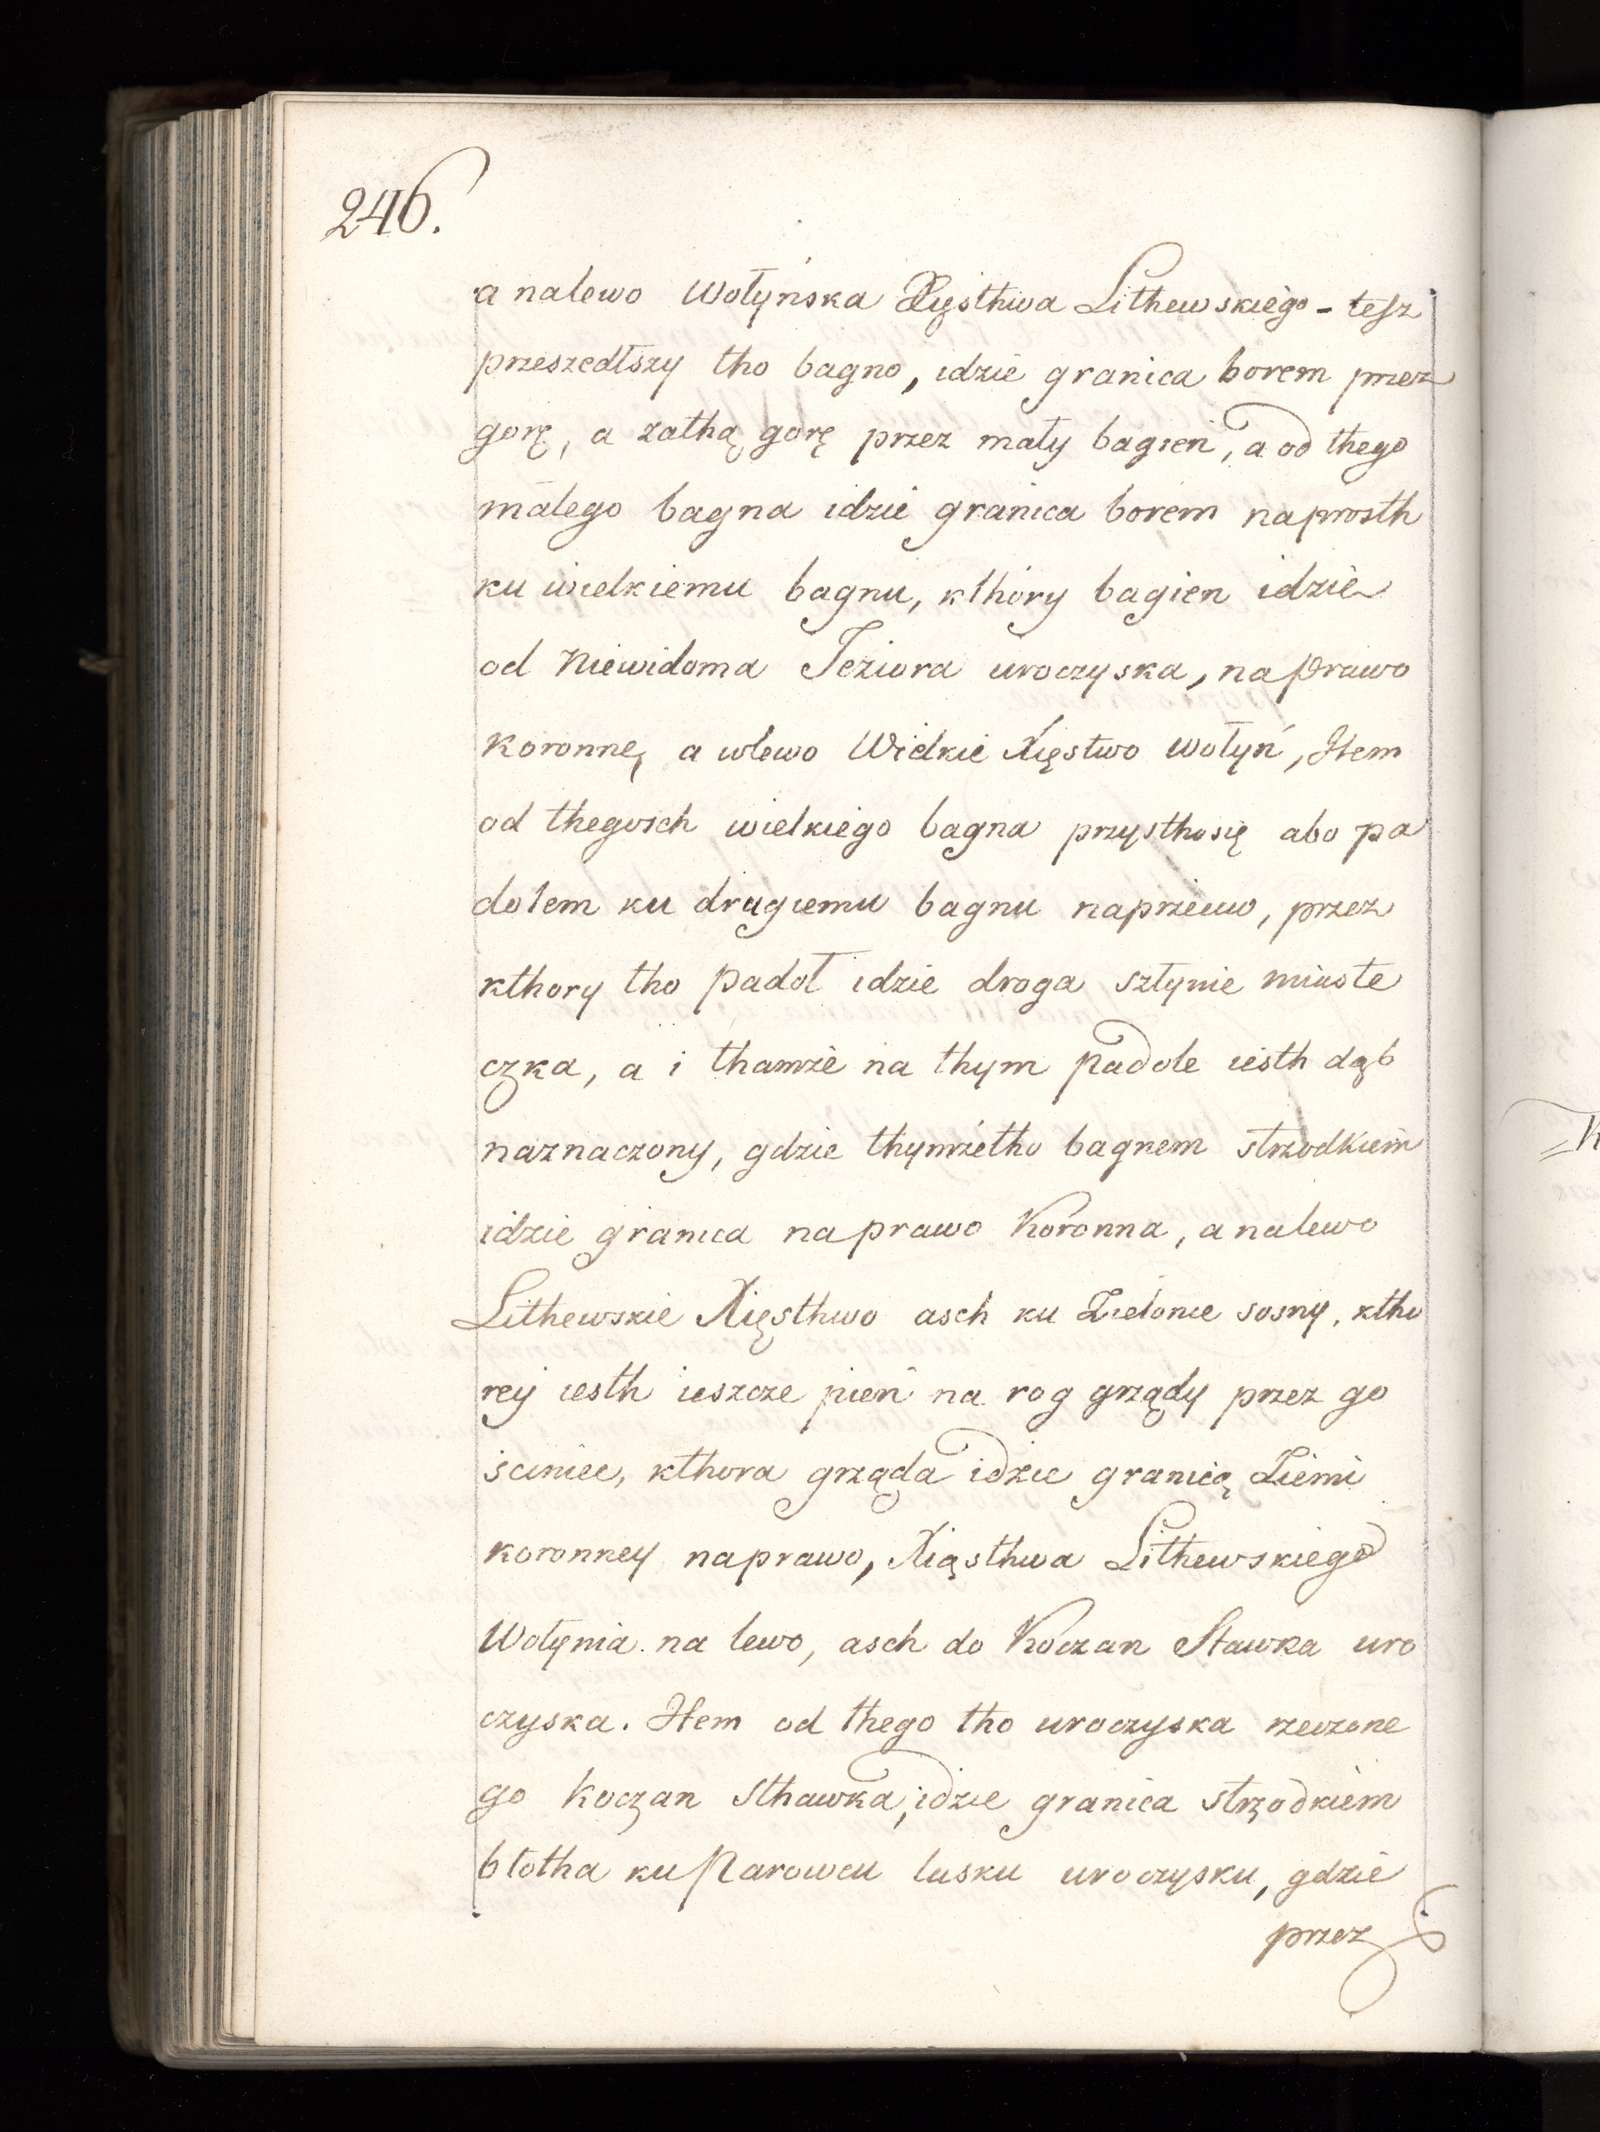 246.
a nalewo Wołyńska Xięsthwa Lithewskiego - tesz
przeszedłszy tho bagno, idzie granica borem przez
gorę, a zathą gorę przez mały bagień, a od thego
małego bagna idzie granica borem naprosth
ku wielkiemu bagnu, kthóry bagien idzie
od Niewidoma Jeziora uroczyska, na prawo
Koronne, a wlewo Wielkie Xięstwo Wołyń, Item
od thegosch wielkiego bagna przysthosię abo pa
dołem ku drugiemu bagnu naprzeciwo, przez
kthory tho padoł idzie droga sztynie miaste
czka, a i thamże na thym padole iesth dąb
naznaczony, gdzie thymżetho bagnem strzodkiem
idzie granica na prawo Koronna, a nalewo
Lithewskie Xięsthwo asch ku Zielonie sosny, ktho
rey iesth ieszcze pień na rog grządy przez go
ściniec, kthora grząda idzie granicą Ziemi
koronney naprawo, Xiąsthwa Lithewskiego
Wołynia na lewo, asch do Koczan Stawka uro
czyska. Item od thego tho uroczyska rzeczone
go Koczan Sthawka, idzie granica strzodkiem
błotha ku Narowcu lusku uroczysku, gdzie
przez